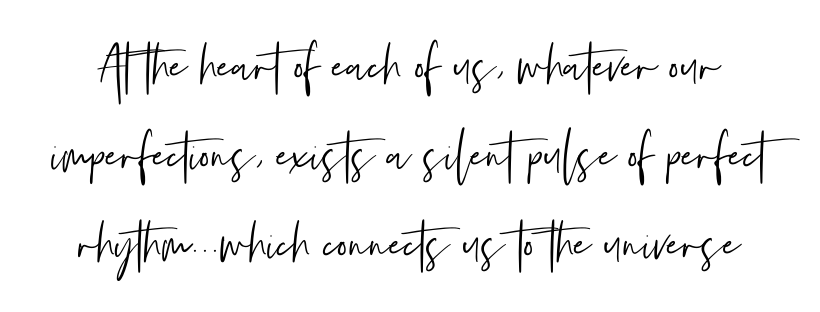 At the heart of each of us, whatever our
imperfections, exists a silent pulse of perfect
rhythm...which connects us to the universe